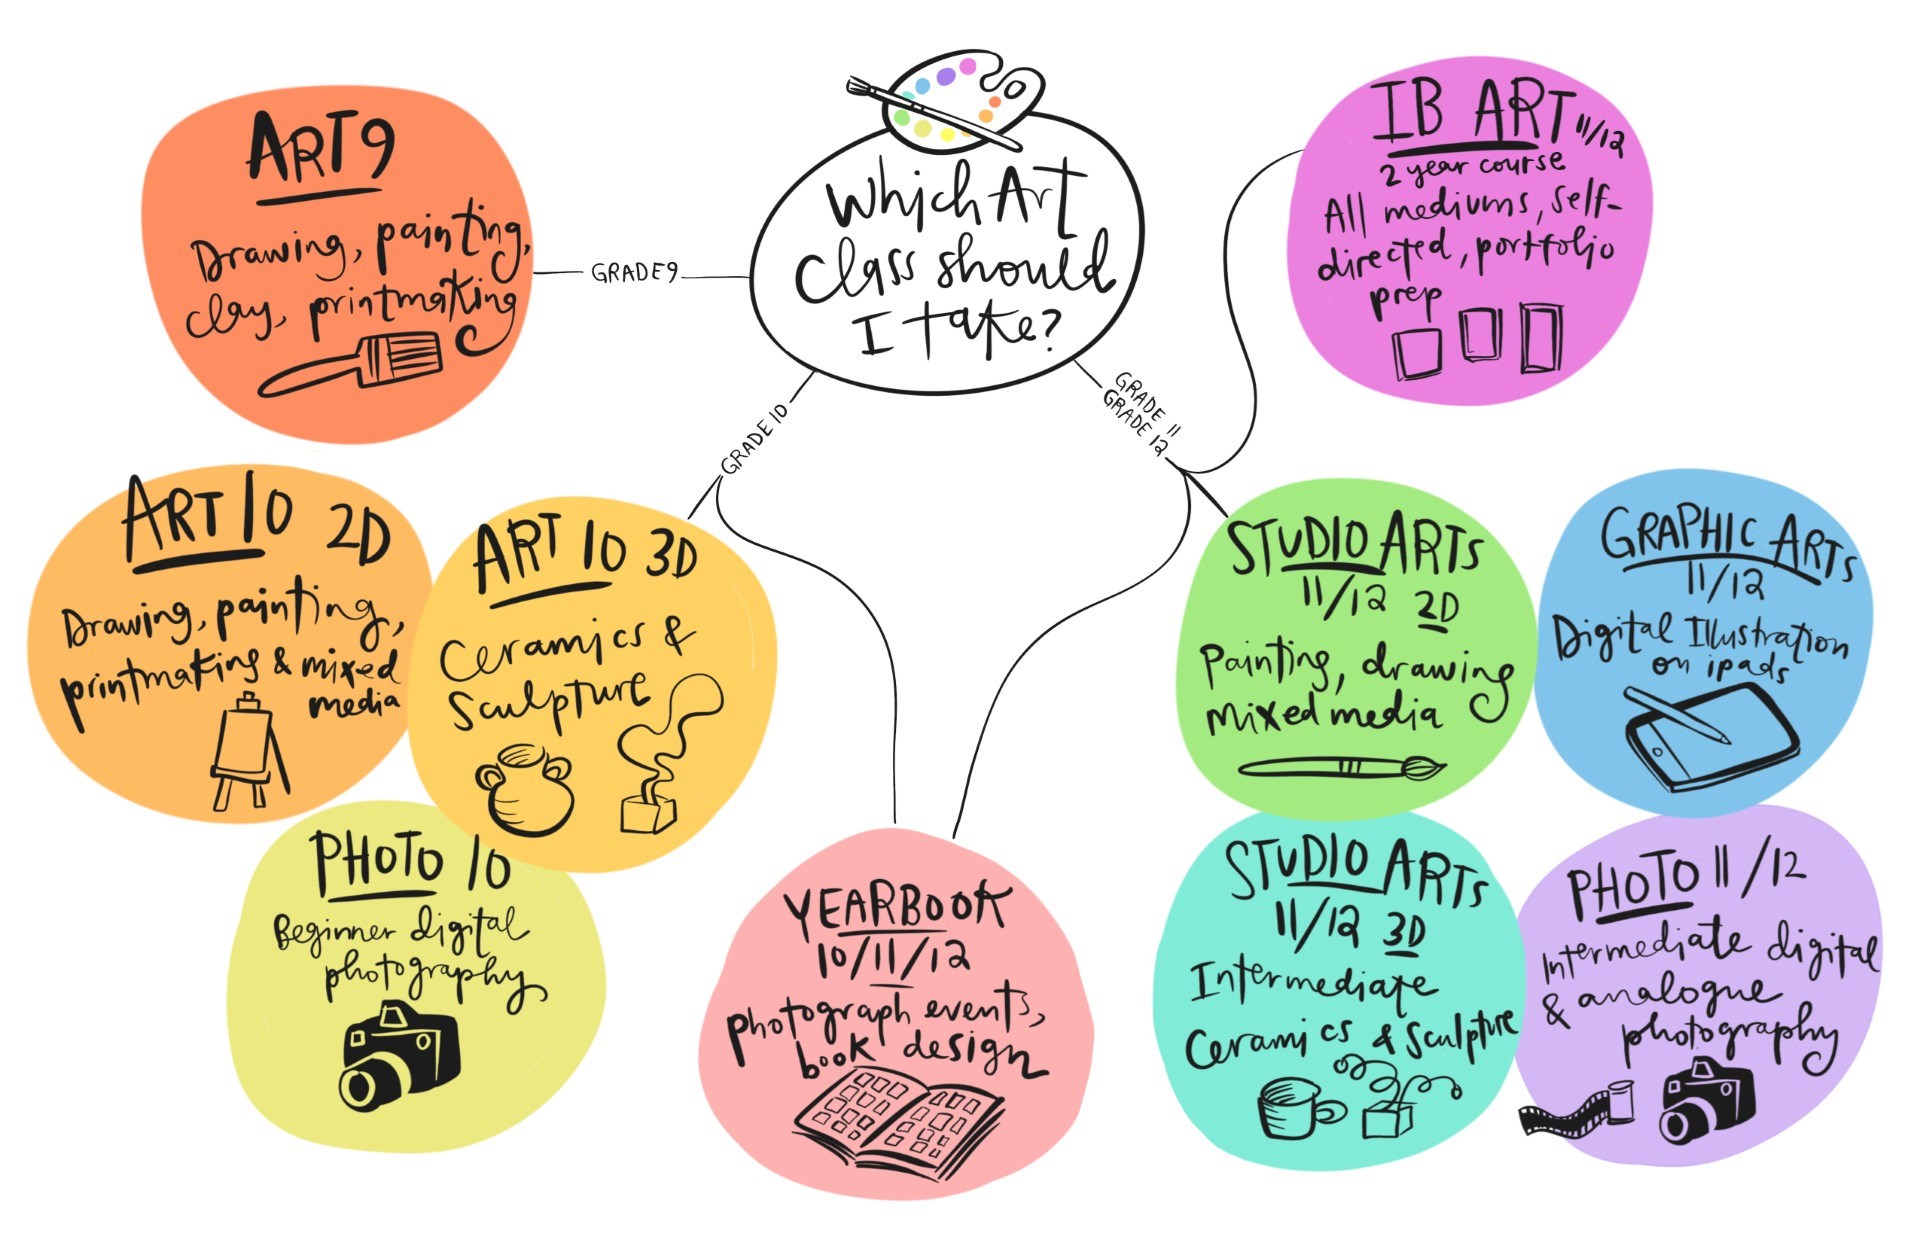 Which Art
Class should
I take?
GRADE 9
ART 9
Drawing, painting,
clay, printmaking
GRADE 10
ART 10 2D
Drawing, painting,
printmaking & mixed
media
ART 10 3D
Ceramics &
Sculpture
PHOTO 10
Beginner digital
photography
YEARBOOK
10/11/12
photograph events,
book design
GRADE 11
GRADE 12
IB ART 11/12
2 year course
All mediums, self-
directed, portfolio
prep
STUDIO ARTS
11/12 2D
Painting, drawing
mixed media
GRAPHIC ARTS
11/12
Digital Illustration
on ipads
STUDIO ARTS
11/12 3D
Intermediate
Ceramics & Sculpture
PHOTO 11/12
Intermediate digital
& analogue
photography